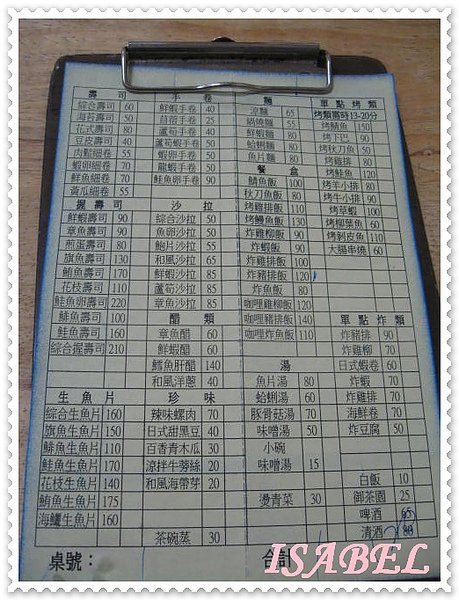 壽司
綜合壽司 60
海苔壽司 50
花式壽司 80
豆皮壽司 40
肉鬆細卷 55
蝦卵細卷 70
鮭魚細卷 70
黃瓜細卷 55
握壽司
鮮蝦壽司 90
章魚壽司 90
煎蛋壽司 80
旗魚壽司 130
鮪魚壽司 170
花枝壽司 110
鮭魚卵壽司 220
鯡魚壽司 100
鮭魚壽司 160
綜合握壽司 210
生魚片
綜合生魚片 160
旗魚生魚片 150
鯡魚生魚片 110
鮭魚生魚片 170
花枝生魚片 140
鮪魚生魚片 175
海鱺生魚片 160
桌號:
手卷
鮮蝦手卷 40
苜蓿手卷 25
蘆筍手卷 40
蘆筍蝦手卷 50
蝦卵手卷 50
龍蝦手卷 50
鮭魚卵手卷 90
沙拉
綜合沙拉 50
魚卵沙拉 50
鮑片沙拉 55
和風沙拉 65
鮮蝦沙拉 85
蘆筍沙拉 85
章魚沙拉 85
醋類
章魚醋 60
鮮蝦醋 60
鱈魚肝醋 140
和風洋蔥 40
珍味
辣味螺肉 70
日式甜黑豆 40
百香青木瓜 30
涼拌牛蒡絲 20
和風海帶芽 20
茶碗蒸 30
麵
涼麵 65
鍋燒麵 55
鮮蝦麵 80
蛤蜊麵 80
魚片麵 80
餐盒
鯖魚飯 100
秋刀魚飯 90
烤雞排飯 110
烤鰻魚飯 130
炸雞柳飯 90
炸蝦飯 90
炸雞排飯 100
炸豬排飯 120
炸魚飯 80
咖哩雞飯 100
咖哩豬排飯 140
咖哩炸魚飯 110
湯
魚片湯 80
蛤蜊湯 50
豚骨菇湯 70
味噌湯 50
小碗
味噌湯 15
燙青菜 30
合計
單點烤類
烤類需時13-20分
烤鯖魚 150
烤下巴 90
烤秋刀魚 50
烤雞排 80
烤鮭魚 120
烤牛小排 80
烤牛小排
烤草蝦 100
烤柳葉魚 60
烤剝皮魚 110
大腸串燒 60
單點炸類
炸豬排 90
炸雞柳 70
日式蝦卷 60
炸蝦 70
炸雞排 70
海鮮卷 70
炸豆腐 50
白飯 10
御茶園 25
啤酒
清酒
ISABEL